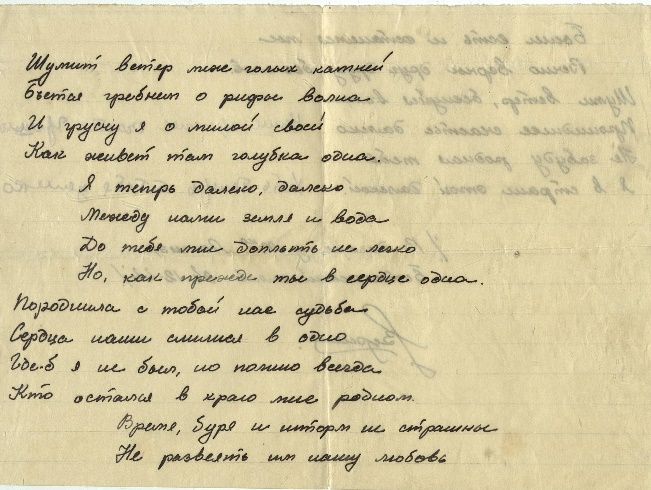 Шумит ветер меж голых камней
Бьется гребнем о рифы волна
И грущу я о милой своей
Как живет там голубка одна.
Я теперь далеко, далеко
Между нами земля и вода
До тебя мне доплыть не легко
Но, как прежде ты в сердце одна.
Породнила с тобой нас судьба
Сердца наши слилися в одно
Где-б я не был, но помню всегда
Кто остался в краю мне родном.
Время, буря и шторм не страшны
Не развеять им нашу любовь